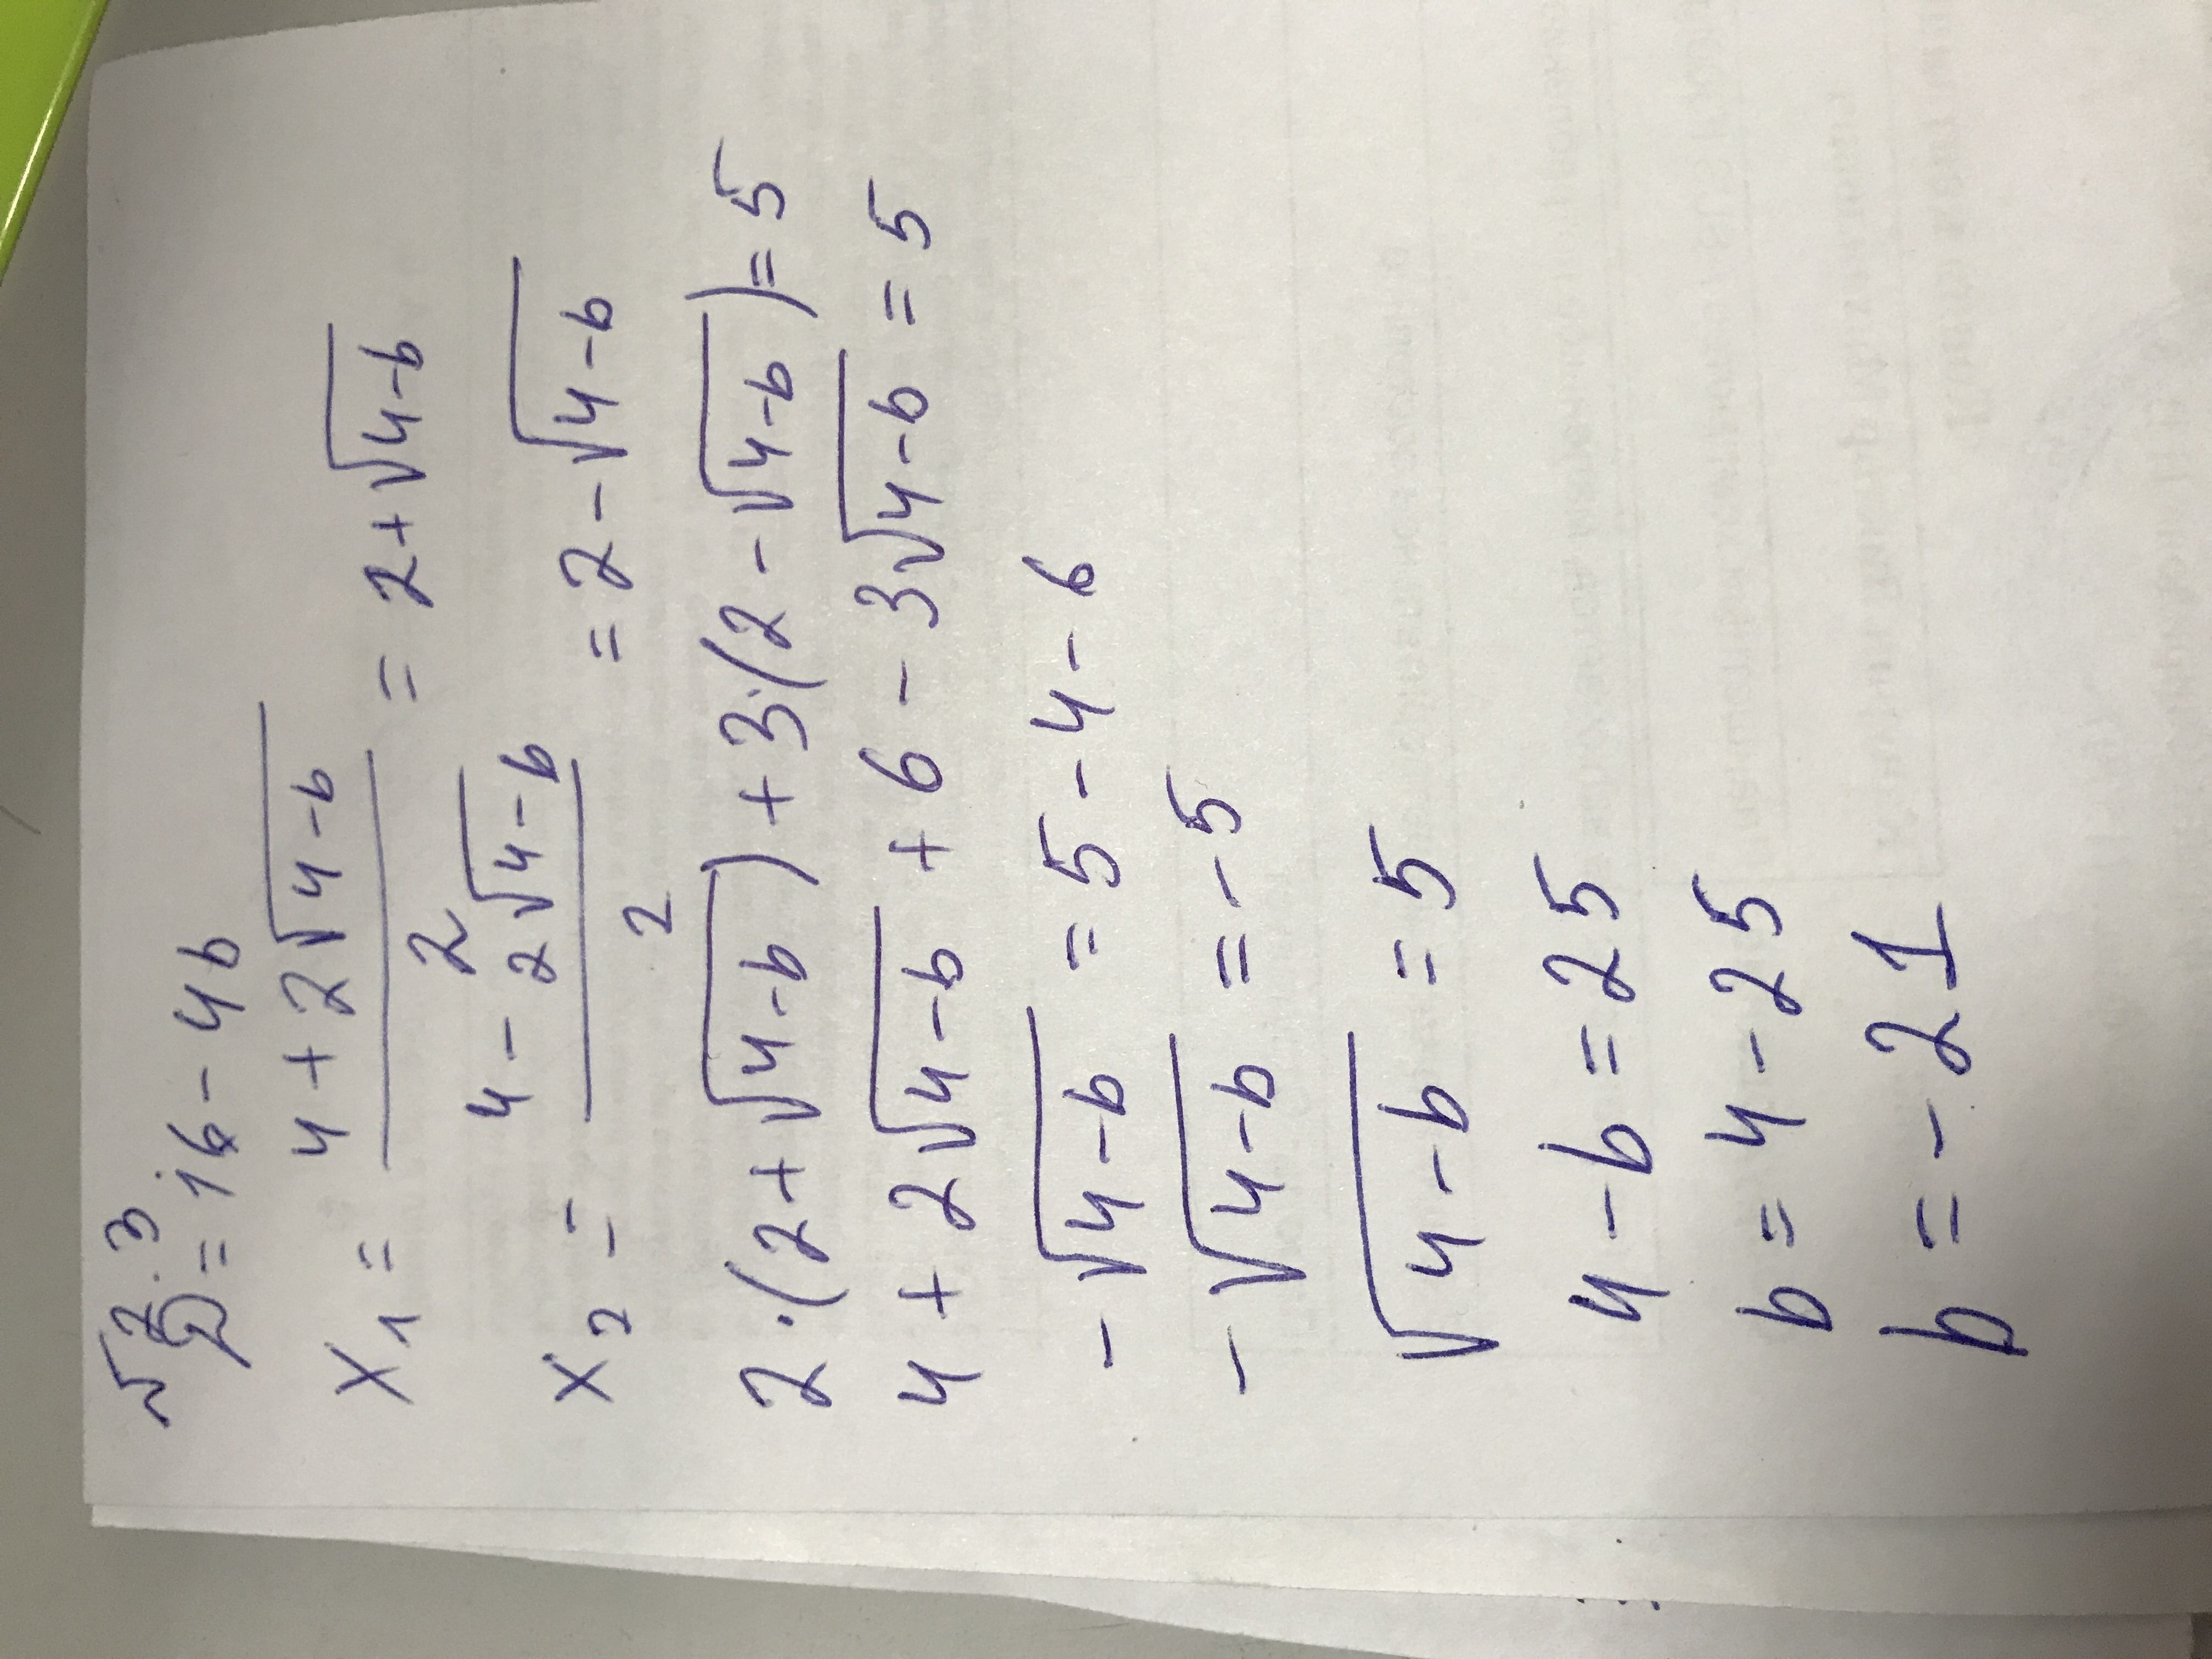 √2.3
D = 16 - 4b
x₁ = (4 + 2√(4-b))/2 = 2 + √(4-b)
x₂ = (4 - 2√(4-b))/2 = 2 - √(4-b)
2·(2+√(4-b)) + 3·(2 - √(4-b)) = 5
4 + 2√(4-b) + 6 - 3√(4-b) = 5
-√(4-b) = 5 - 4 - 6
-√(4-b) = -5
√(4-b) = 5
4 - b = 25
b = 4 - 25
b = -21